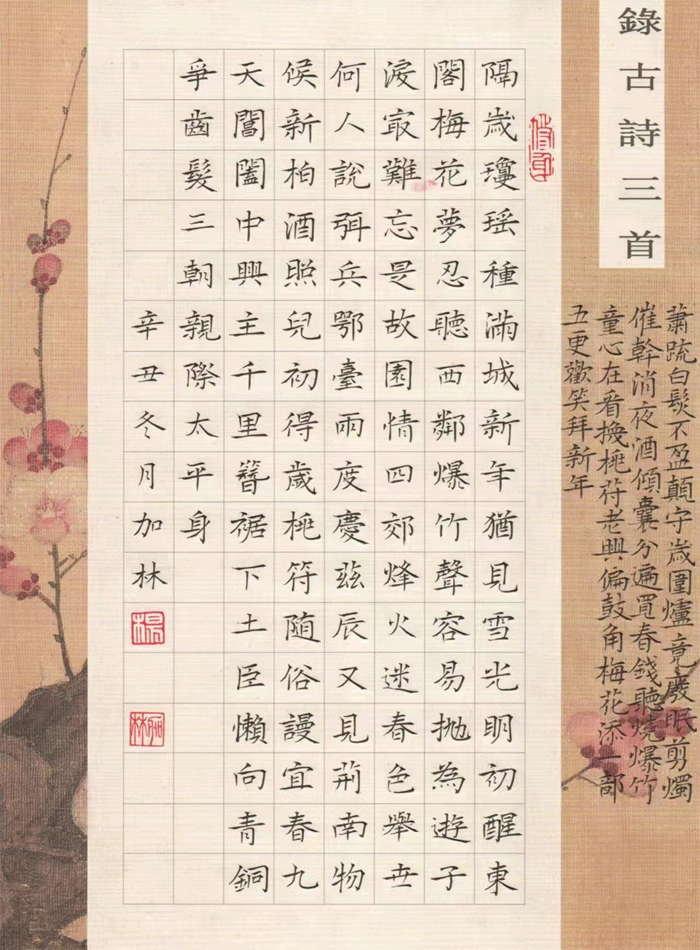 錄古詩三首
蕭疏白髮不盈顛守歲圍爐竟廢眠剪燭
催幹消夜酒傾囊分遍買春錢聽燒爆竹
童心在看換桃符老興偏鼓角梅花添一部
五更歡笑拜新年
隔歲瓊瑤種滿城新年猶見雪光明初醒東
閣梅花夢忍聽西鄰爆竹聲容易拋為遊子
淚最難忘是故園情四郊烽火迷春色舉世
何人說弭兵鄂臺兩度慶茲辰又見荊南物
候新柏酒照兒初得歲桃符隨俗謾宜春九
天閶闔中興主千里簪裾下土臣懶向青銅
爭齒髮三朝親際太平身
辛丑冬月加林
楊
加林